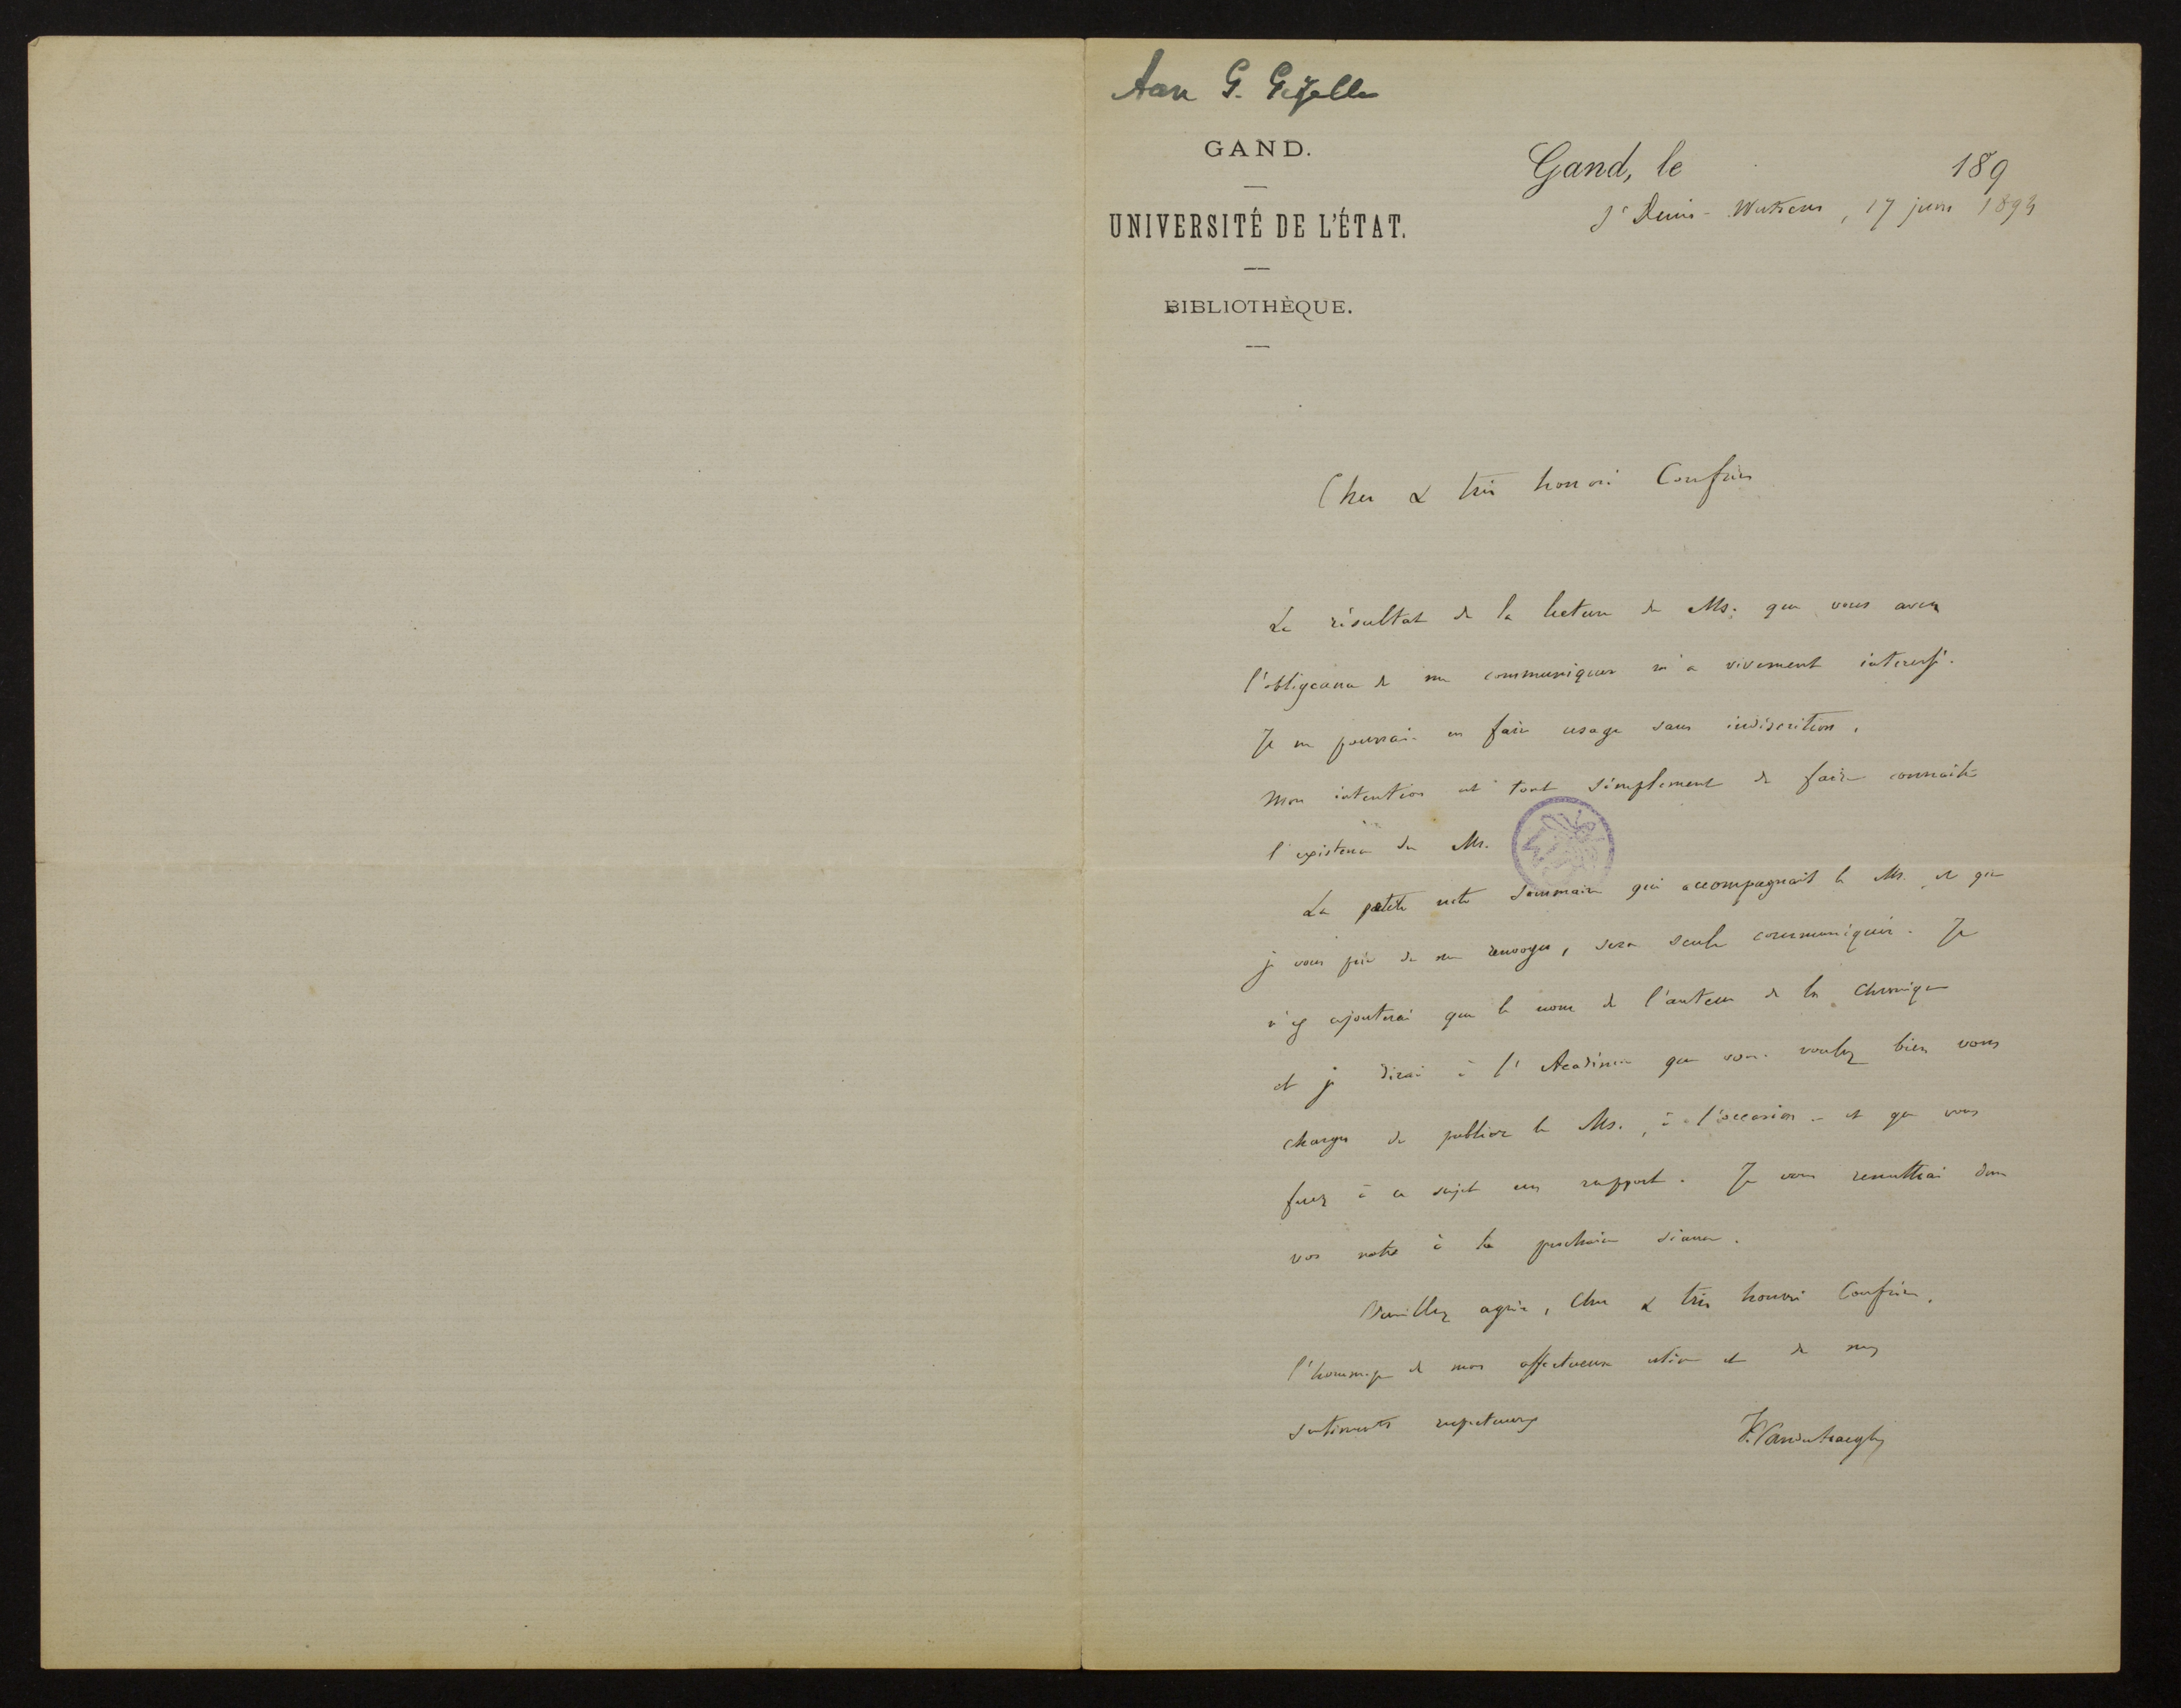 Aan G. Gezelle
GAND.
UNIVERSITÉ DE L'ÉTAT.
BIBLIOTHÈQUE.
Gand, le 189
St Denis-Westrem, 17 juin 1893
Cher & très honoré Confrère
Le résultat de la lecture du Ms. que vous avez
l'obligeance de me communiquer m'a vivement intéressé.
Je ne pourrais en faire usage sans indiscrétion.
Mon intention est tout simplement de faire connaître
l'existence du Ms.
La petite note sommaire qui accompagnait le Ms. et que
je vous prie de me renvoyer, sera seule communiquée. Je
n'y ajouterai que le nom de l'auteur de la Chronique
et je dirai à l'Académie que vous voulez bien vous
charger de publier le Ms., à l'occasion - et que vous
ferez à ce sujet un rapport. Je vous remettrai donc
vos notes à la prochaine séance.
Veuillez agréer, Cher & très honoré Confrère,
l'hommage de mon affectueuse estime et de mes
sentiments respectueux
F. Vanderhaeghen